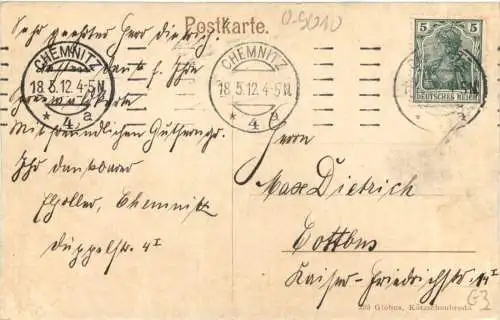 Postkarte.
0-9010
Sehr geehrter Herr Dietrich,
besten Dank f. Ihre
Mit freundlichen
Ihr dankbarer
Chemnitz
Düppelstr. 4 I
CHEMNITZ
18.5.12.4-5N.
* 4 a
CHEMNITZ
18.5.12.4-5N.
* 4 a
5 5
DEUTSCHES REICH
Herrn
Max Dietrich
Cottbus
Kaiser-Friedrichstr.
G3
Globus, Kötzschenbroda